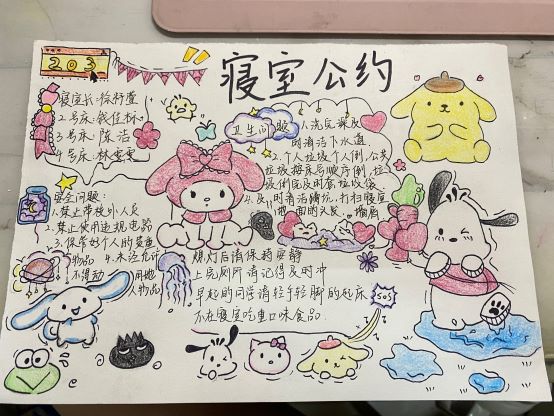 203
寝室公约
寝室长:徐
2.号床:钱佳
3.号床:陈洁
4.号床:林雯雯
卫生问题
1.洗完澡及
时清洁下水道
2.个人垃圾个人倒,公共
垃圾按床号顺序倒,垃
圾倒完及时套垃圾袋
4.及时清洁,打扫寝室
地面的头发
安全问题:
1.禁止带校外人员
2.禁止使用违规电器
3.保管好个人的贵重
物品 4.未经允许
不得动用他
人物品
熄灯后请保持安静
上完厕所请记得及时冲
早起的同学请轻手轻脚的起床
不在寝室吃重口味食品
SOS